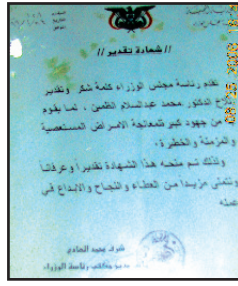 // شهادة تقدير //
تقدم رئاسة مجلس الوزراء كلمة شكر وتقدير
للأخ الدكتور محمد عبدالسلام الظمين ، لما يقوم
من جهود كبير لمعالجة الامراض المستعصية
والمزمنة والخطرة .
ولذلك تم منحه هذا الشهادة تقديراً وعرفاناً
ونتمنى مزيداً من العطاء والنجاح والابداع في
عمله
مدير مكتب رئاسة الوزراء